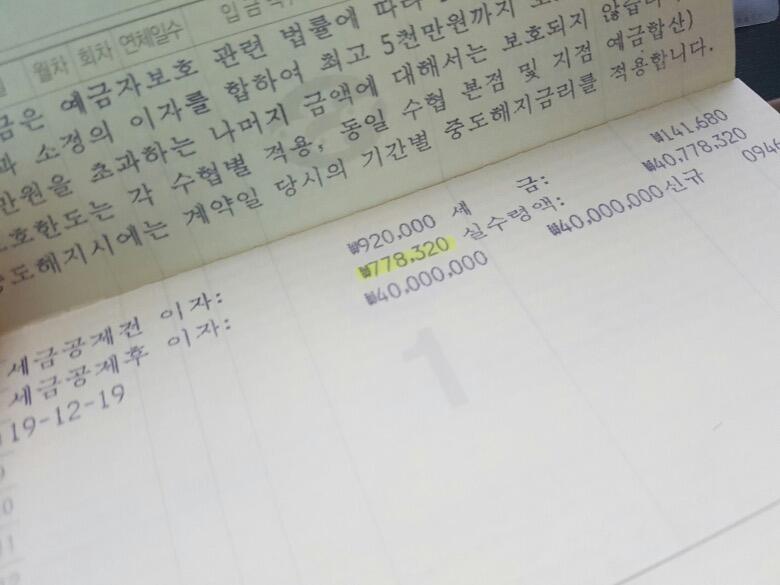 입 금
월차 회차 연체일수
금은 예금자보호 관련 법률에 따라
소정의 이자를 합하여 최고 5천만원까지
만원을 초과하는 나머지 금액에 대해서는 보호되지 않습니
호한도는 각 수협별 적용, 동일 수협 본점 및 지점 예금합산)
중도해지시에는 계약일 당시의 기간별 중도해지금리를 적용합니다.
세금공제전 이자: ₩920,000 세 금: ₩141,680
세금공제후 이자: ₩778,320 실수령액: ₩40,778,320
19-12-19 ₩40,000,000 ₩40,000,000신규 0946
1